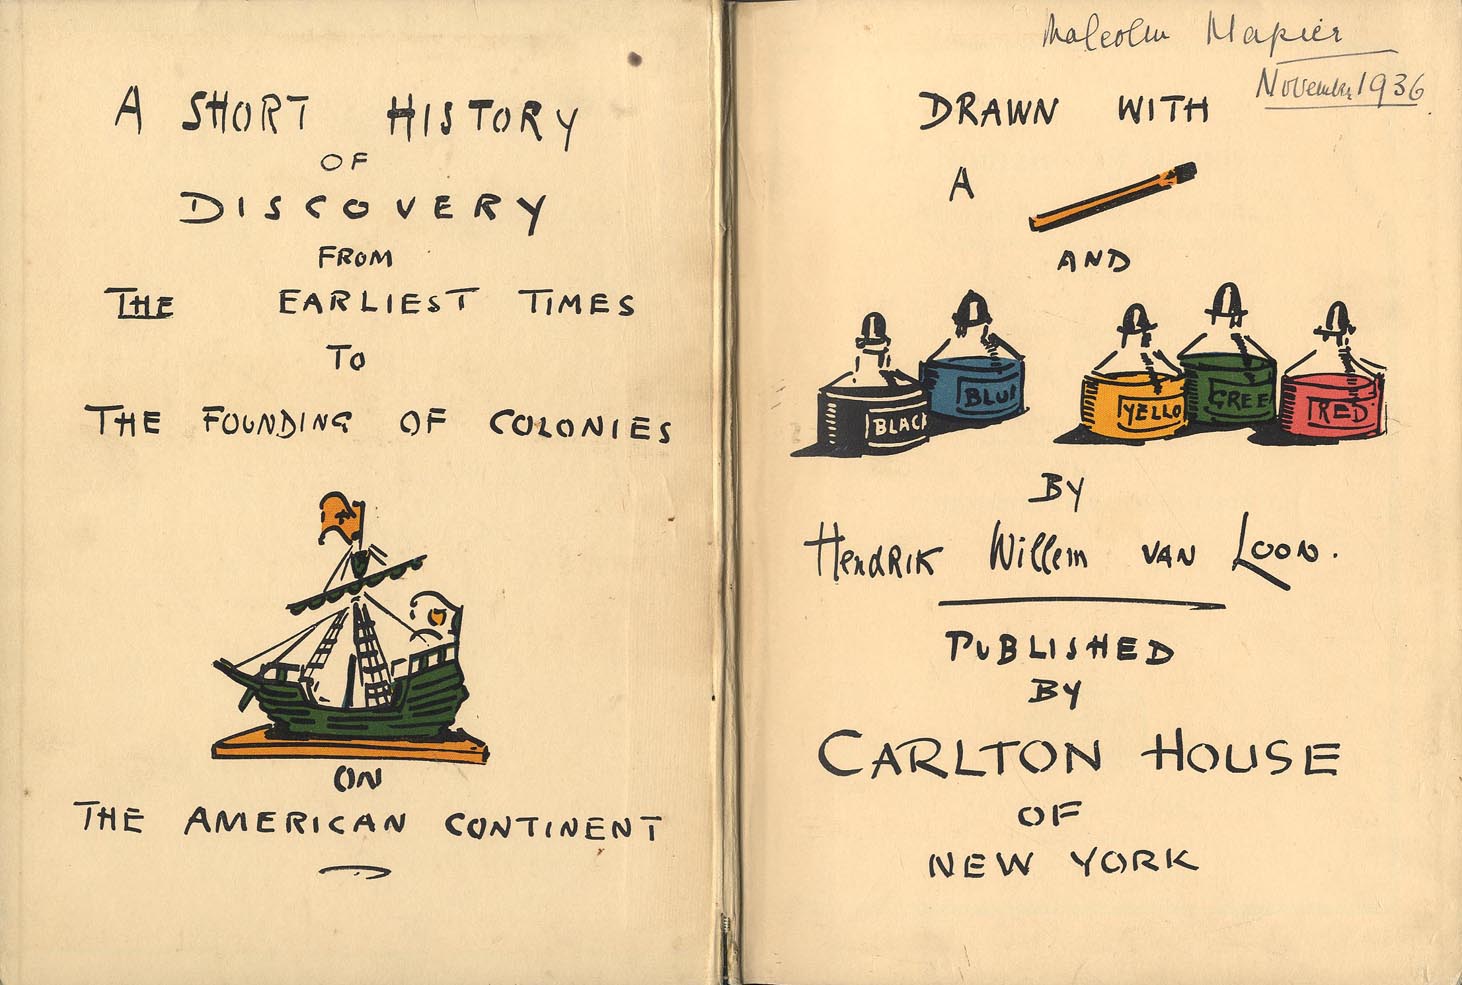 A SHORT HISTORY
OF
DISCOVERY
FROM
THE EARLIEST TIMES
TO
THE FOUNDING OF COLONIES
ON
THE AMERICAN CONTINENT
Malcolm Napier
November 1936
DRAWN WITH
A
AND
BLACK BLU YELLO GREE RED
BY
HENDRIK WILLEM VAN LOON.
PUBLISHED
BY
CARLTON HOUSE
OF
NEW YORK